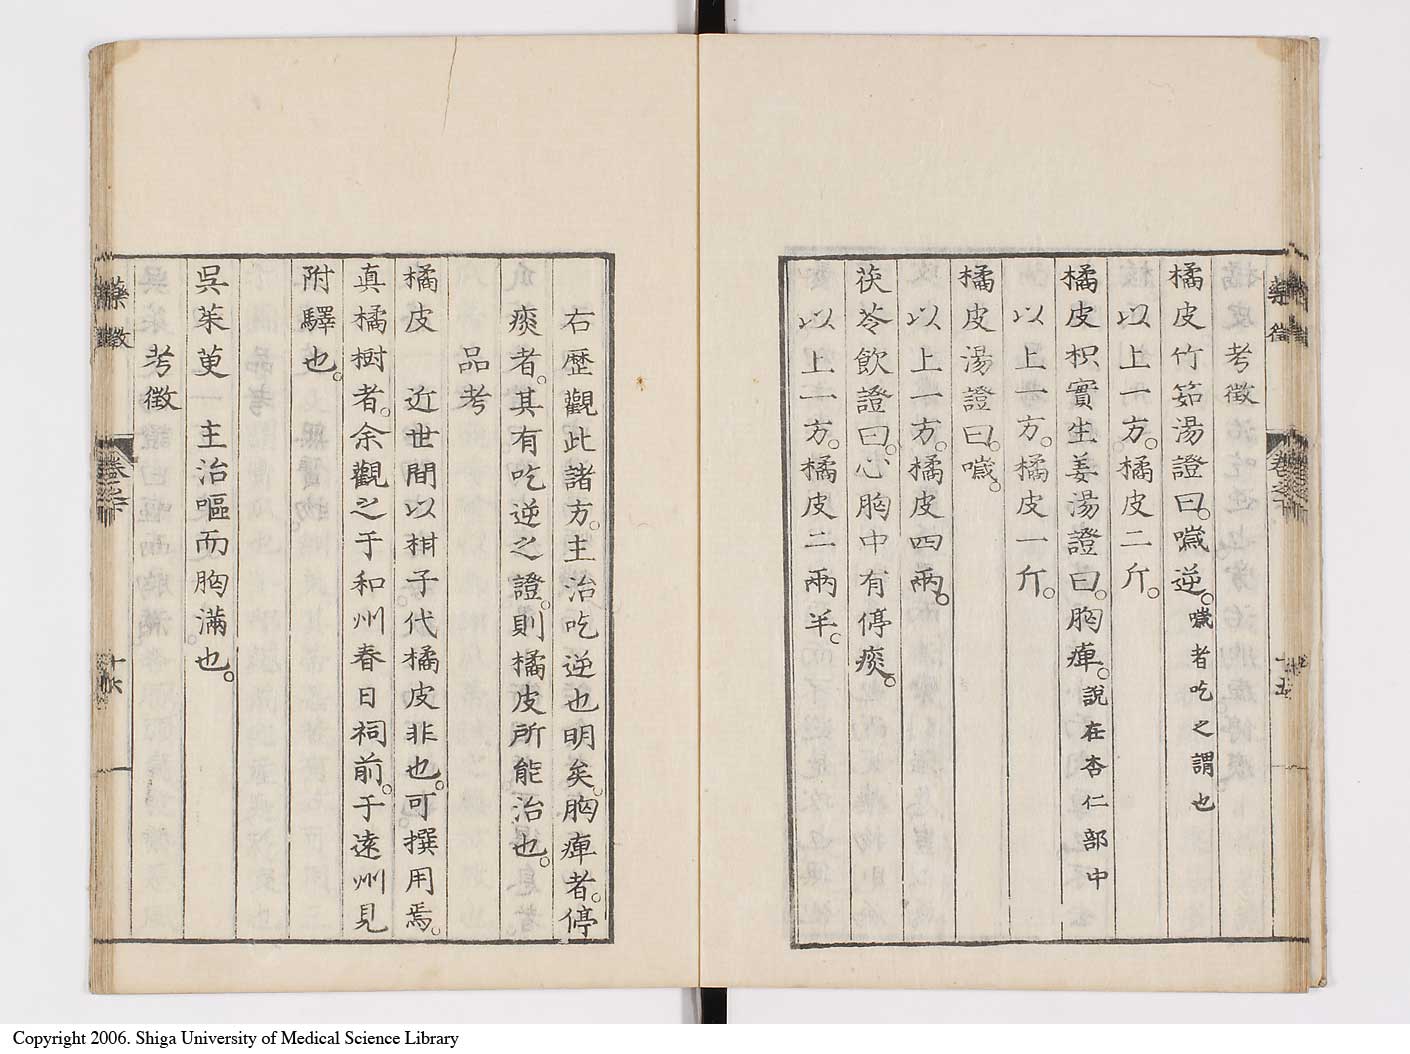 考徵
橘皮竹茹湯證曰。噦逆。噦者吃之謂也
以上一方。橘皮二斤。
橘皮枳實生姜湯證曰。胸痺。說在杏仁部中
以上一方。橘皮一斤。
橘皮湯證曰。噦。
以上一方。橘皮四兩。
茯苓飲證曰。心胸中有停痰。
以上一方。橘皮二兩半。
右歷觀此諸方。主治吃逆也明矣。胸痺者。停
痰者。其有吃逆之證。則橘皮所能治也。
品考
橘皮 近世間以柑子代橘皮非也。可撰用焉。
真橘樹者。余觀之于和州春日祠前。于遠州見
附驛也。
吳茱萸 主治嘔而胸滿也。
考徵
藥徵
卷之
十六
Copyright 2006. Shiga University of Medical Science Library